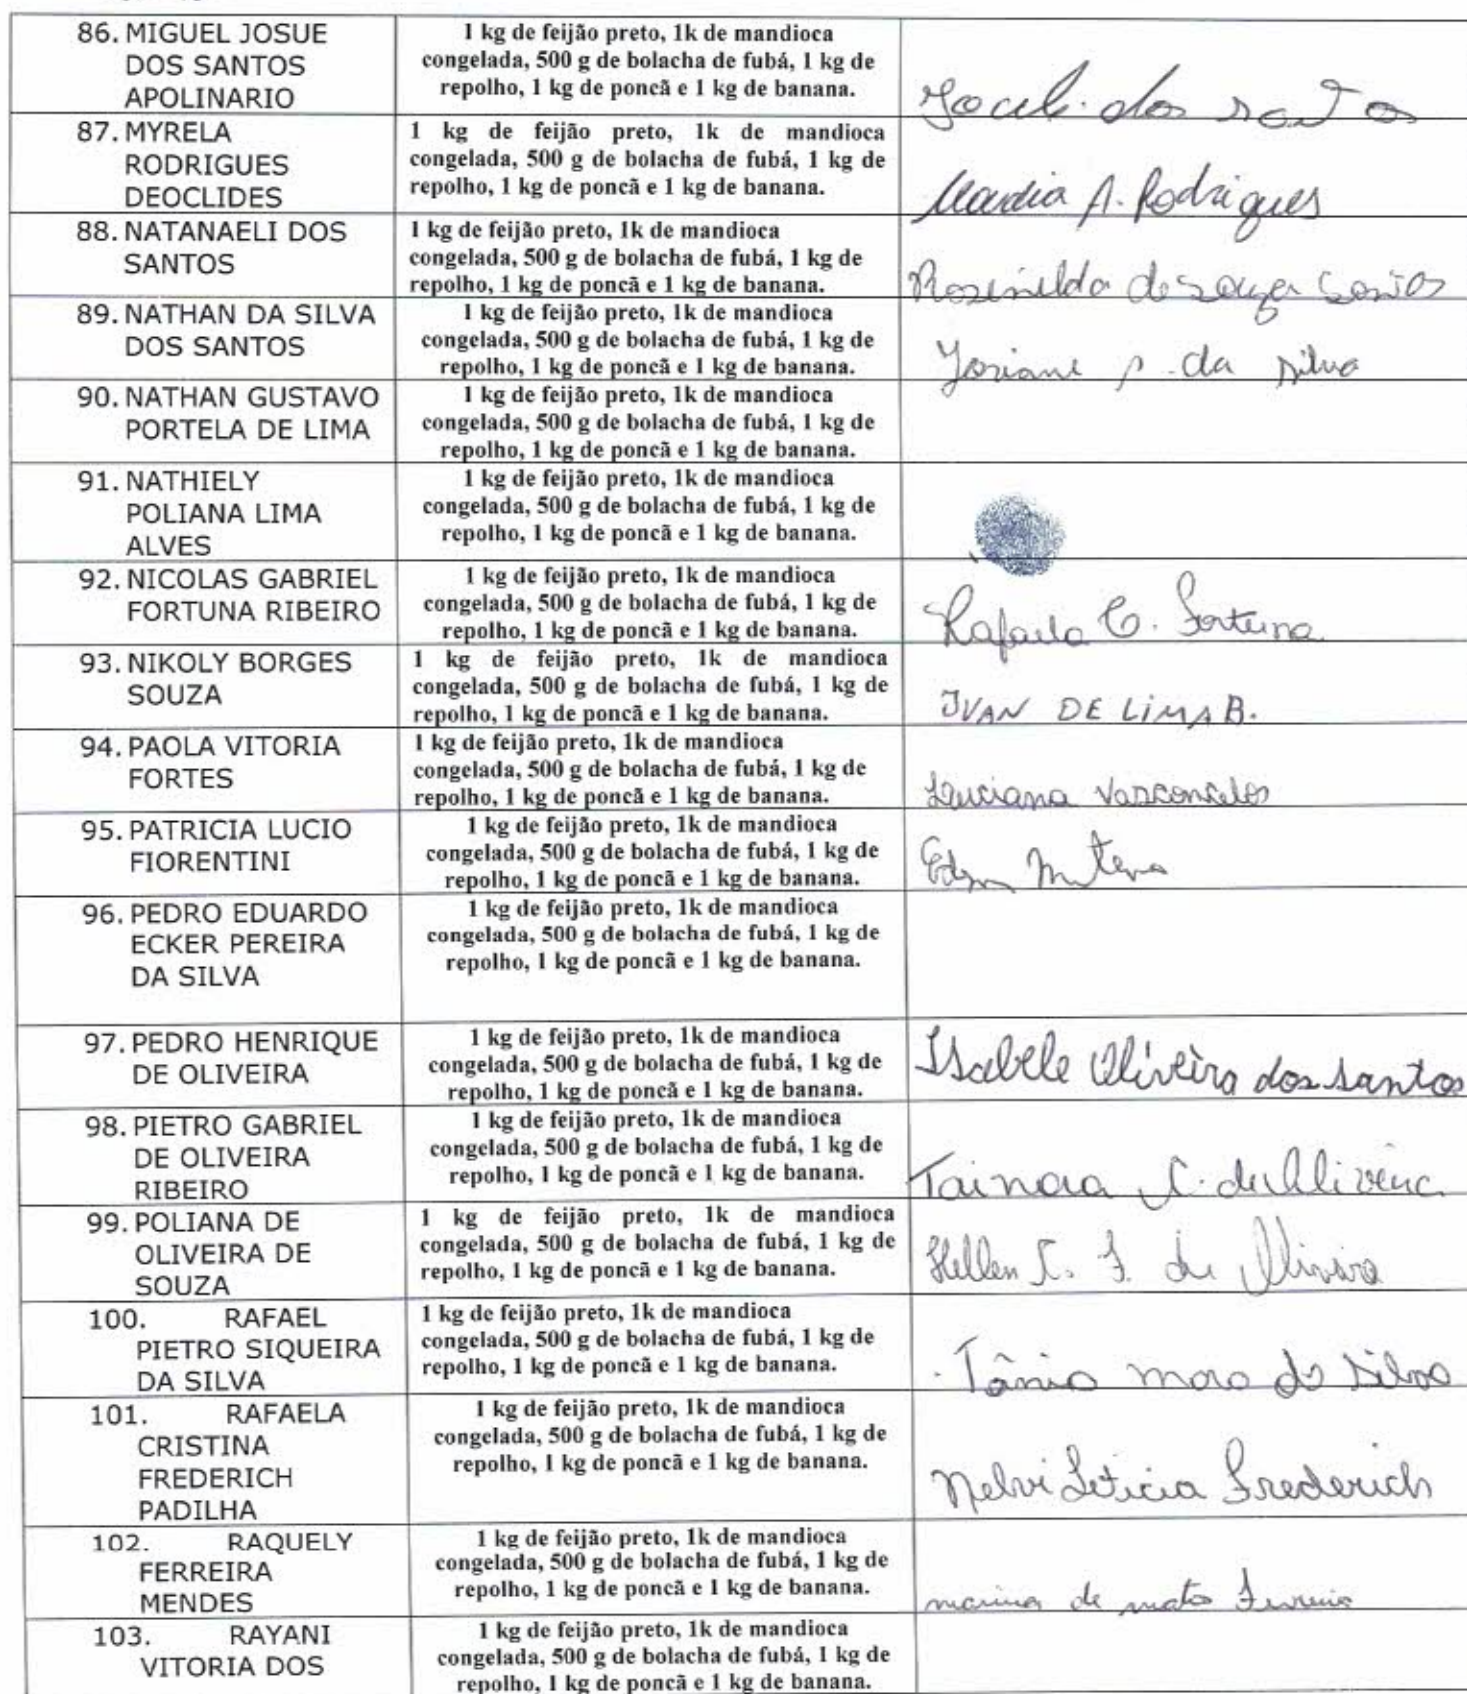 86. MIGUEL JOSUE
DOS SANTOS
APOLINARIO
1 kg de feijão preto, 1k de mandioca
congelada, 500 g de bolacha de fubá, 1 kg de
repolho, 1 kg de poncã e 1 kg de banana.
dos santos
87. MYRELA
RODRIGUES
DEOCLIDES
1 kg de feijão preto, 1k de mandioca
congelada, 500 g de bolacha de fubá, 1 kg de
repolho, 1 kg de poncã e 1 kg de banana.
A. Rodrigues
88. NATANAELI DOS
SANTOS
1 kg de feijão preto, 1k de mandioca
congelada, 500 g de bolacha de fubá, 1 kg de
repolho, 1 kg de poncã e 1 kg de banana.
Rosenilda de souza santos
89. NATHAN DA SILVA
DOS SANTOS
1 kg de feijão preto, 1k de mandioca
congelada, 500 g de bolacha de fubá, 1 kg de
repolho, 1 kg de poncã e 1 kg de banana.
Josiane p. da silva
90. NATHAN GUSTAVO
PORTELA DE LIMA
1 kg de feijão preto, 1k de mandioca
congelada, 500 g de bolacha de fubá, 1 kg de
repolho, 1 kg de poncã e 1 kg de banana.
91. NATHIELY
POLIANA LIMA
ALVES
1 kg de feijão preto, 1k de mandioca
congelada, 500 g de bolacha de fubá, 1 kg de
repolho, 1 kg de poncã e 1 kg de banana.
92. NICOLAS GABRIEL
FORTUNA RIBEIRO
1 kg de feijão preto, 1k de mandioca
congelada, 500 g de bolacha de fubá, 1 kg de
repolho, 1 kg de poncã e 1 kg de banana.
Rafaela C. Fortuna
93. NIKOLY BORGES
SOUZA
1 kg de feijão preto, 1k de mandioca
congelada, 500 g de bolacha de fubá, 1 kg de
repolho, 1 kg de poncã e 1 kg de banana.
IVAN DE LIMA B.
94. PAOLA VITORIA
FORTES
1 kg de feijão preto, 1k de mandioca
congelada, 500 g de bolacha de fubá, 1 kg de
repolho, 1 kg de poncã e 1 kg de banana.
Luciana Vasconcelos
95. PATRICIA LUCIO
FIORENTINI
1 kg de feijão preto, 1k de mandioca
congelada, 500 g de bolacha de fubá, 1 kg de
repolho, 1 kg de poncã e 1 kg de banana.
96. PEDRO EDUARDO
ECKER PEREIRA
DA SILVA
1 kg de feijão preto, 1k de mandioca
congelada, 500 g de bolacha de fubá, 1 kg de
repolho, 1 kg de poncã e 1 kg de banana.
97. PEDRO HENRIQUE
DE OLIVEIRA
1 kg de feijão preto, 1k de mandioca
congelada, 500 g de bolacha de fubá, 1 kg de
repolho, 1 kg de poncã e 1 kg de banana.
Isabele Oliveira dos santos
98. PIETRO GABRIEL
DE OLIVEIRA
RIBEIRO
1 kg de feijão preto, 1k de mandioca
congelada, 500 g de bolacha de fubá, 1 kg de
repolho, 1 kg de poncã e 1 kg de banana.
Tainara C. de Oliveira
99. POLIANA DE
OLIVEIRA DE
SOUZA
1 kg de feijão preto, 1k de mandioca
congelada, 500 g de bolacha de fubá, 1 kg de
repolho, 1 kg de poncã e 1 kg de banana.
Hellen C. F. de Oliveira
100. RAFAEL
PIETRO SIQUEIRA
DA SILVA
1 kg de feijão preto, 1k de mandioca
congelada, 500 g de bolacha de fubá, 1 kg de
repolho, 1 kg de poncã e 1 kg de banana.
Tânia mara da Silva
101. RAFAELA
CRISTINA
FREDERICH
PADILHA
1 kg de feijão preto, 1k de mandioca
congelada, 500 g de bolacha de fubá, 1 kg de
repolho, 1 kg de poncã e 1 kg de banana.
Nelvi Leticia Frederich
102. RAQUELY
FERREIRA
MENDES
1 kg de feijão preto, 1k de mandioca
congelada, 500 g de bolacha de fubá, 1 kg de
repolho, 1 kg de poncã e 1 kg de banana.
marina de mato Ferreira
103. RAYANI
VITORIA DOS
1 kg de feijão preto, 1k de mandioca
congelada, 500 g de bolacha de fubá, 1 kg de
repolho, 1 kg de poncã e 1 kg de banana.